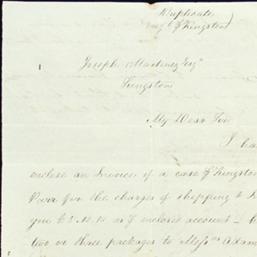 Duplicate
Kingston
Joseph Martinez Esqr
Kingston
My Dear Sir
I ha
enclose an Invoice of a case of Kingston
for the charges of shipping to
you to enclosed account
two or three packages to Messrs Adam